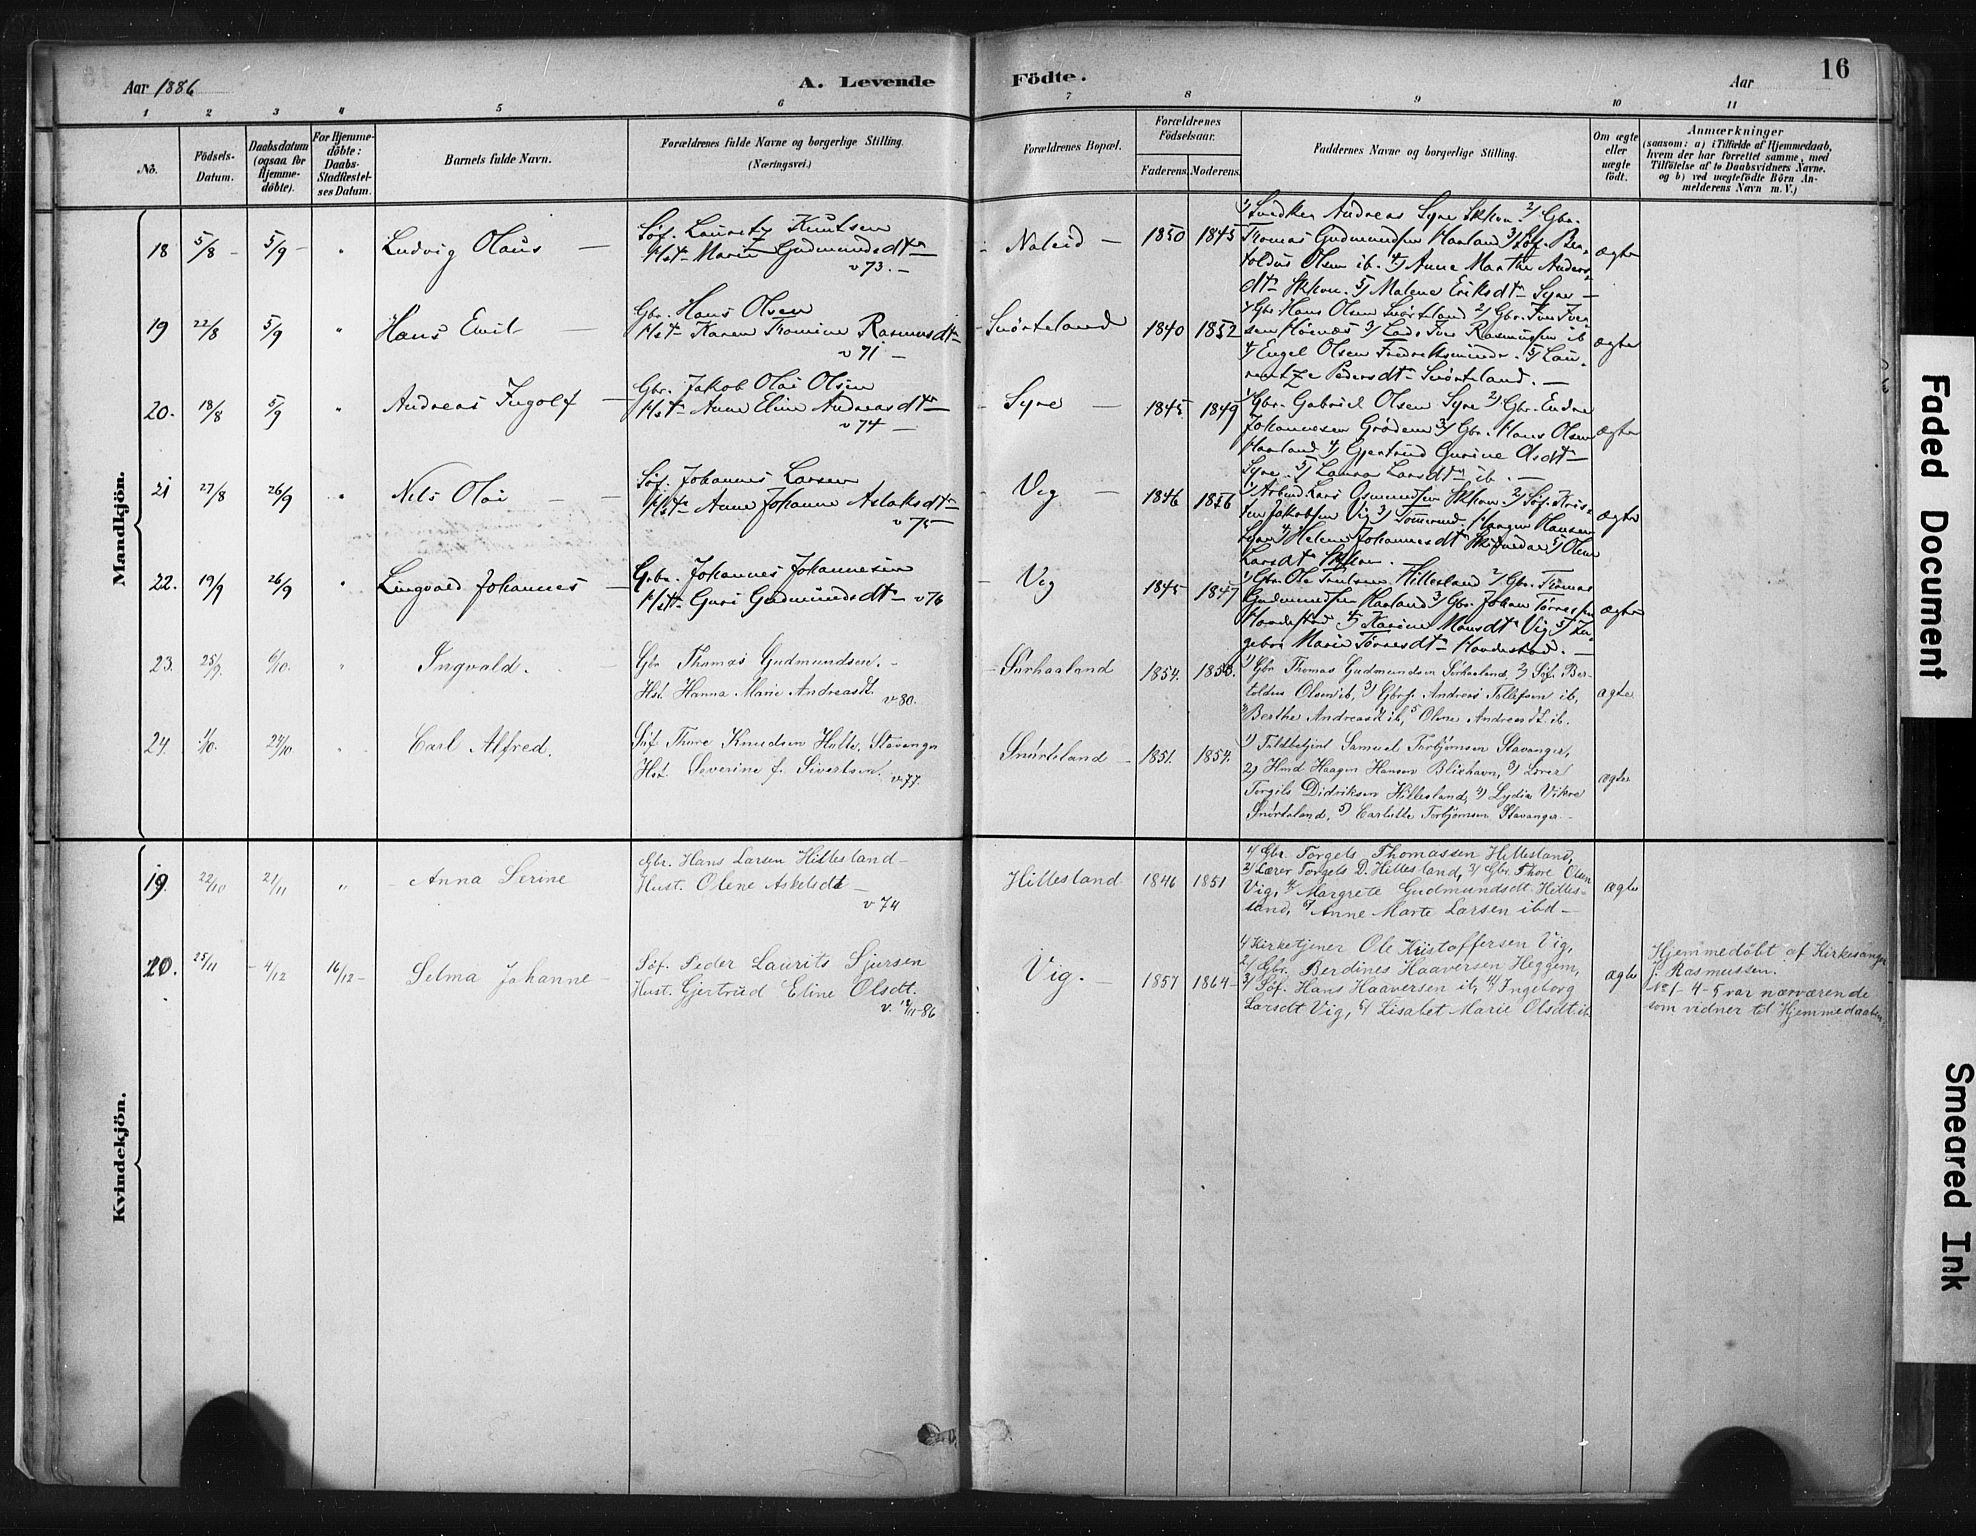 Aar 1886
A. Levende
Födte.
Aar
16
1 2 3 4 5 6 7 8 9 10 11
No.
Födsels-
Datum.
Daabsdatum
(ogsaa for
Hjemme-
döbte).
For Hjemme-
döbte:
Daabs-
Stadfæstel-
ses Datum.
Barnets fulde Navn.
Forældrenes fulde Navne og borgerlige Stilling.
(Næringsvei.)
Forældrenes Bopæl.
Forældrenes
Födselsaar.
Faderens. Moderens.
Faddernes Navne og borgerlige Stilling.
Om ægte
eller
uægte
födt.
Anmærkninger
(saasom: a) i Tilfælde af Hjemmedaab,
hvem der har forrettet samme, med
Tilföielse af to Daabsvidners Navne.
og b) ved uægtefödte Börn An-
melderens Navn m. V.)
Mandkjön.
18 5/8 - 5/9 - " Ludvig Olaus —
Søf. Lauretz Knutsen
Hst Marie Gudmundsdtr
v 73. —
Naleid — 1850 1845
1) Snedker Andreas Syre Skhvn 2) Gbr.
Thomas Gudmundsen Haaland 3) Søf. Ber-
toldus Olsen ib. 4) Anne Marthe Anders-
dtr Skhvn. 5) Malene Eriksdtr Syre —
ægte
19 22/8 5/9 " Hans Emil —
Gbr. Hans Olsen
Hst Karen Tomine Rasmusdtr
v 71 —
Snørteland 1840 1852
1) Gbr Hans Olsen Snørteland 2) Gbr. Iver Iver-
sen Høines 3) Iver Rasmussen ib
4) Engel Olsen 5) Lau-
rentze Pedersdtr Snørteland. —
ægte
20. 18/8 5/9 " Andreas Ingolf —
Gbr. Jakob Olai Olsen
Hst Anne Eline Andreasdtr
v 74 —
Syre — 1845 1849
1) Gbr. Gabriel Olsen Syre 2) Gbr. Endre
Johannesen Grødem 3) Gbr. Hans Olsen
Haaland 4) Gjertrud Gurine Olsdtr
Syre. 5) Laura Larsdtr ib. —
ægte
21 27/8 26/9 " Nils Olai — —
Søf. Johannes Larsen
Hst Anne Johanne Aslaksdtr
v 75
Vig — 1846 1856
1) Arbmd Lars Osmundsen Skhvn 2) Søf. Kris-
ten Jakobsen Vig 3) Tømmermd. Haagen Hansen
4) Helene Johannesdtr 5) Olene
Larsdtr Skhvn.
ægte
22. 19/9 26/9 " Lingvald Johannes —
Gbr. Johannes Johannesen
Hst Guri Gudmundsdtr v 76
Vig 1845 1847
1) Gbr Ole Hillesland 2) Gbr. Thomas
Gudmundsen Haaland 3) Gbr. Johan Torressen
Hovdestad 4) Karine Monsdtr Vig 5) In-
geborg Marie Torresdtr Hovdestad. —
ægte
23. 25/9 6/10. " Ingvald. —
Gbr Thomas Gudmundsen. —
Hst Hanna Marie Andreasdt.
v 80.
Sørhaaland 1854. 1858.
1) Gbr Thomas Gudmundsen Sørhaaland, 2) Søf. Ber-
toldus Olsen ib, 3) Gbrs. Andreas Tollefsen ib,
4) Berthe Andreasdt ib, 5 Olene Andreasdt ib.
ægte
24. 1/10. 24/10 " Carl Alfred.
Søf Thore Knudsen Hatte, Stavanger
Hst. Severine f. Sivertsen. v 77.
Snørteland — 1851. 1854.
1) Toldbetjnt Samuel Torbjørnsen Stavanger,
2) Hmd Haagen Hansen Blixhavn, 3) Lærer
Torgils Didriksen Hillesland, 4) Lydia Vikre
Snørteland, 5) Carlotte Torbjørnsen Stavanger.
ægte
Kvindekjön.
19. 22/10 21/11 " Anna Serine
Gbr. Hans Larsen Hillesland —
Hust. Olene Askelsdt —
v 74
Hillesland 1846 1851
1) Gbr. Torgels Thomassen Hillesland,
2) Lærer Torgels D. Hillesland, 3) Gbr. Thore Olsen
Vig, 4) Margrete Gudmundsdt Hilles-
land, 5) Anne Marte Larsen ibd —
ægte
20. 25/11 - 4/12 16/12 - Selma Johanne —
Søf. Peder Laurits Sjursen
Hust. Gjertrud Eline Olsdt.
v. 12/11-86
Vig. — 1857 1864 —
1) Kirketjener Ole Kristoffersen Vig,
2) Gbr. Berdines Haaversen Heggem,
3) Søf. Hans Haaversen ib, 4) Ingeborg
Larsdt Vig, 5) Lisabet Marie Olsdt ib
ægte
Hjemmedöbt af Kirkesanger
J. Rasmussen.
No 1-4-5 var nærværende
som vidner til Hjemmedaaben.
Faded Document
Smeared Ink